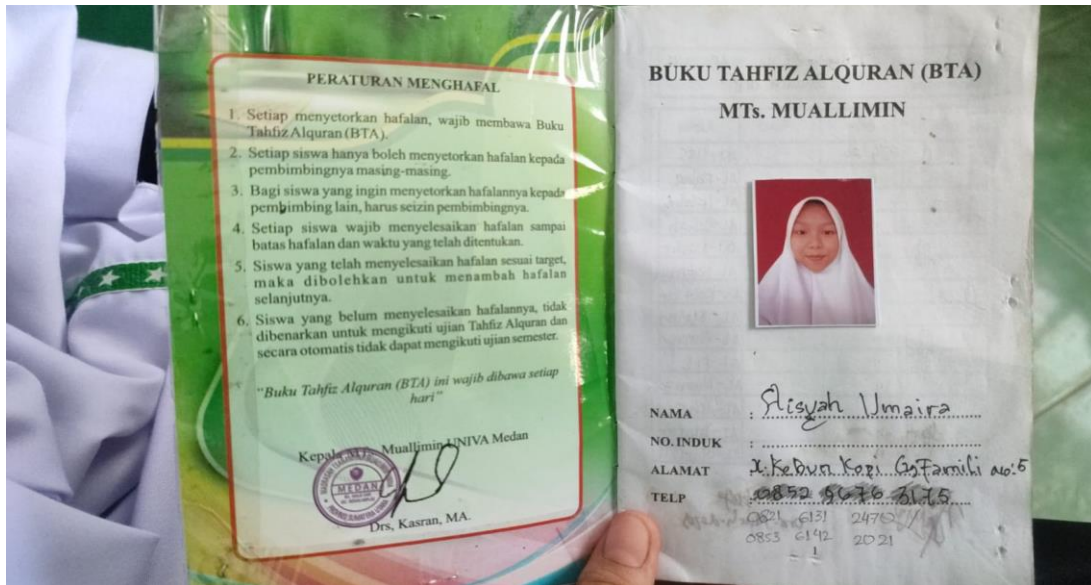 PERATURAN MENGHAFAL
1. Setiap menyetorkan hafalan, wajib membawa Buku
Tahfiz Alquran (BTA).
2. Setiap siswa hanya boleh menyetorkan hafalan kepada
pembimbingnya masing-masing.
3. Bagi siswa yang ingin menyetorkan hafalannya kepada
pembimbing lain, harus seizin pembimbingnya.
4. Setiap siswa wajib menyelesaikan hafalan sampai
batas hafalan dan waktu yang telah ditentukan.
5. Siswa yang telah menyelesaikan hafalan sesuai target,
maka dibolehkan untuk menambah hafalan
selanjutnya.
6. Siswa yang belum menyelesaikan hafalannya, tidak
dibenarkan untuk mengikuti ujian Tahfiz Alquran dan
secara otomatis tidak dapat mengikuti ujian semester.
"Buku Tahfiz Alquran (BTA) ini wajib dibawa setiap
hari"
Muallimin UNIVA Medan
MEDAN
Drs, Kasran, MA.
BUKU TAHFIZ ALQURAN (BTA)
MTs. MUALLIMIN
NAMA : Aisyah Umaira
NO. INDUK :
ALAMAT Jl. Kebun Kopi Gg Famili no:5
TELP : 0852 9676 3175
0821 6131 2476
0853 6142 2021
1